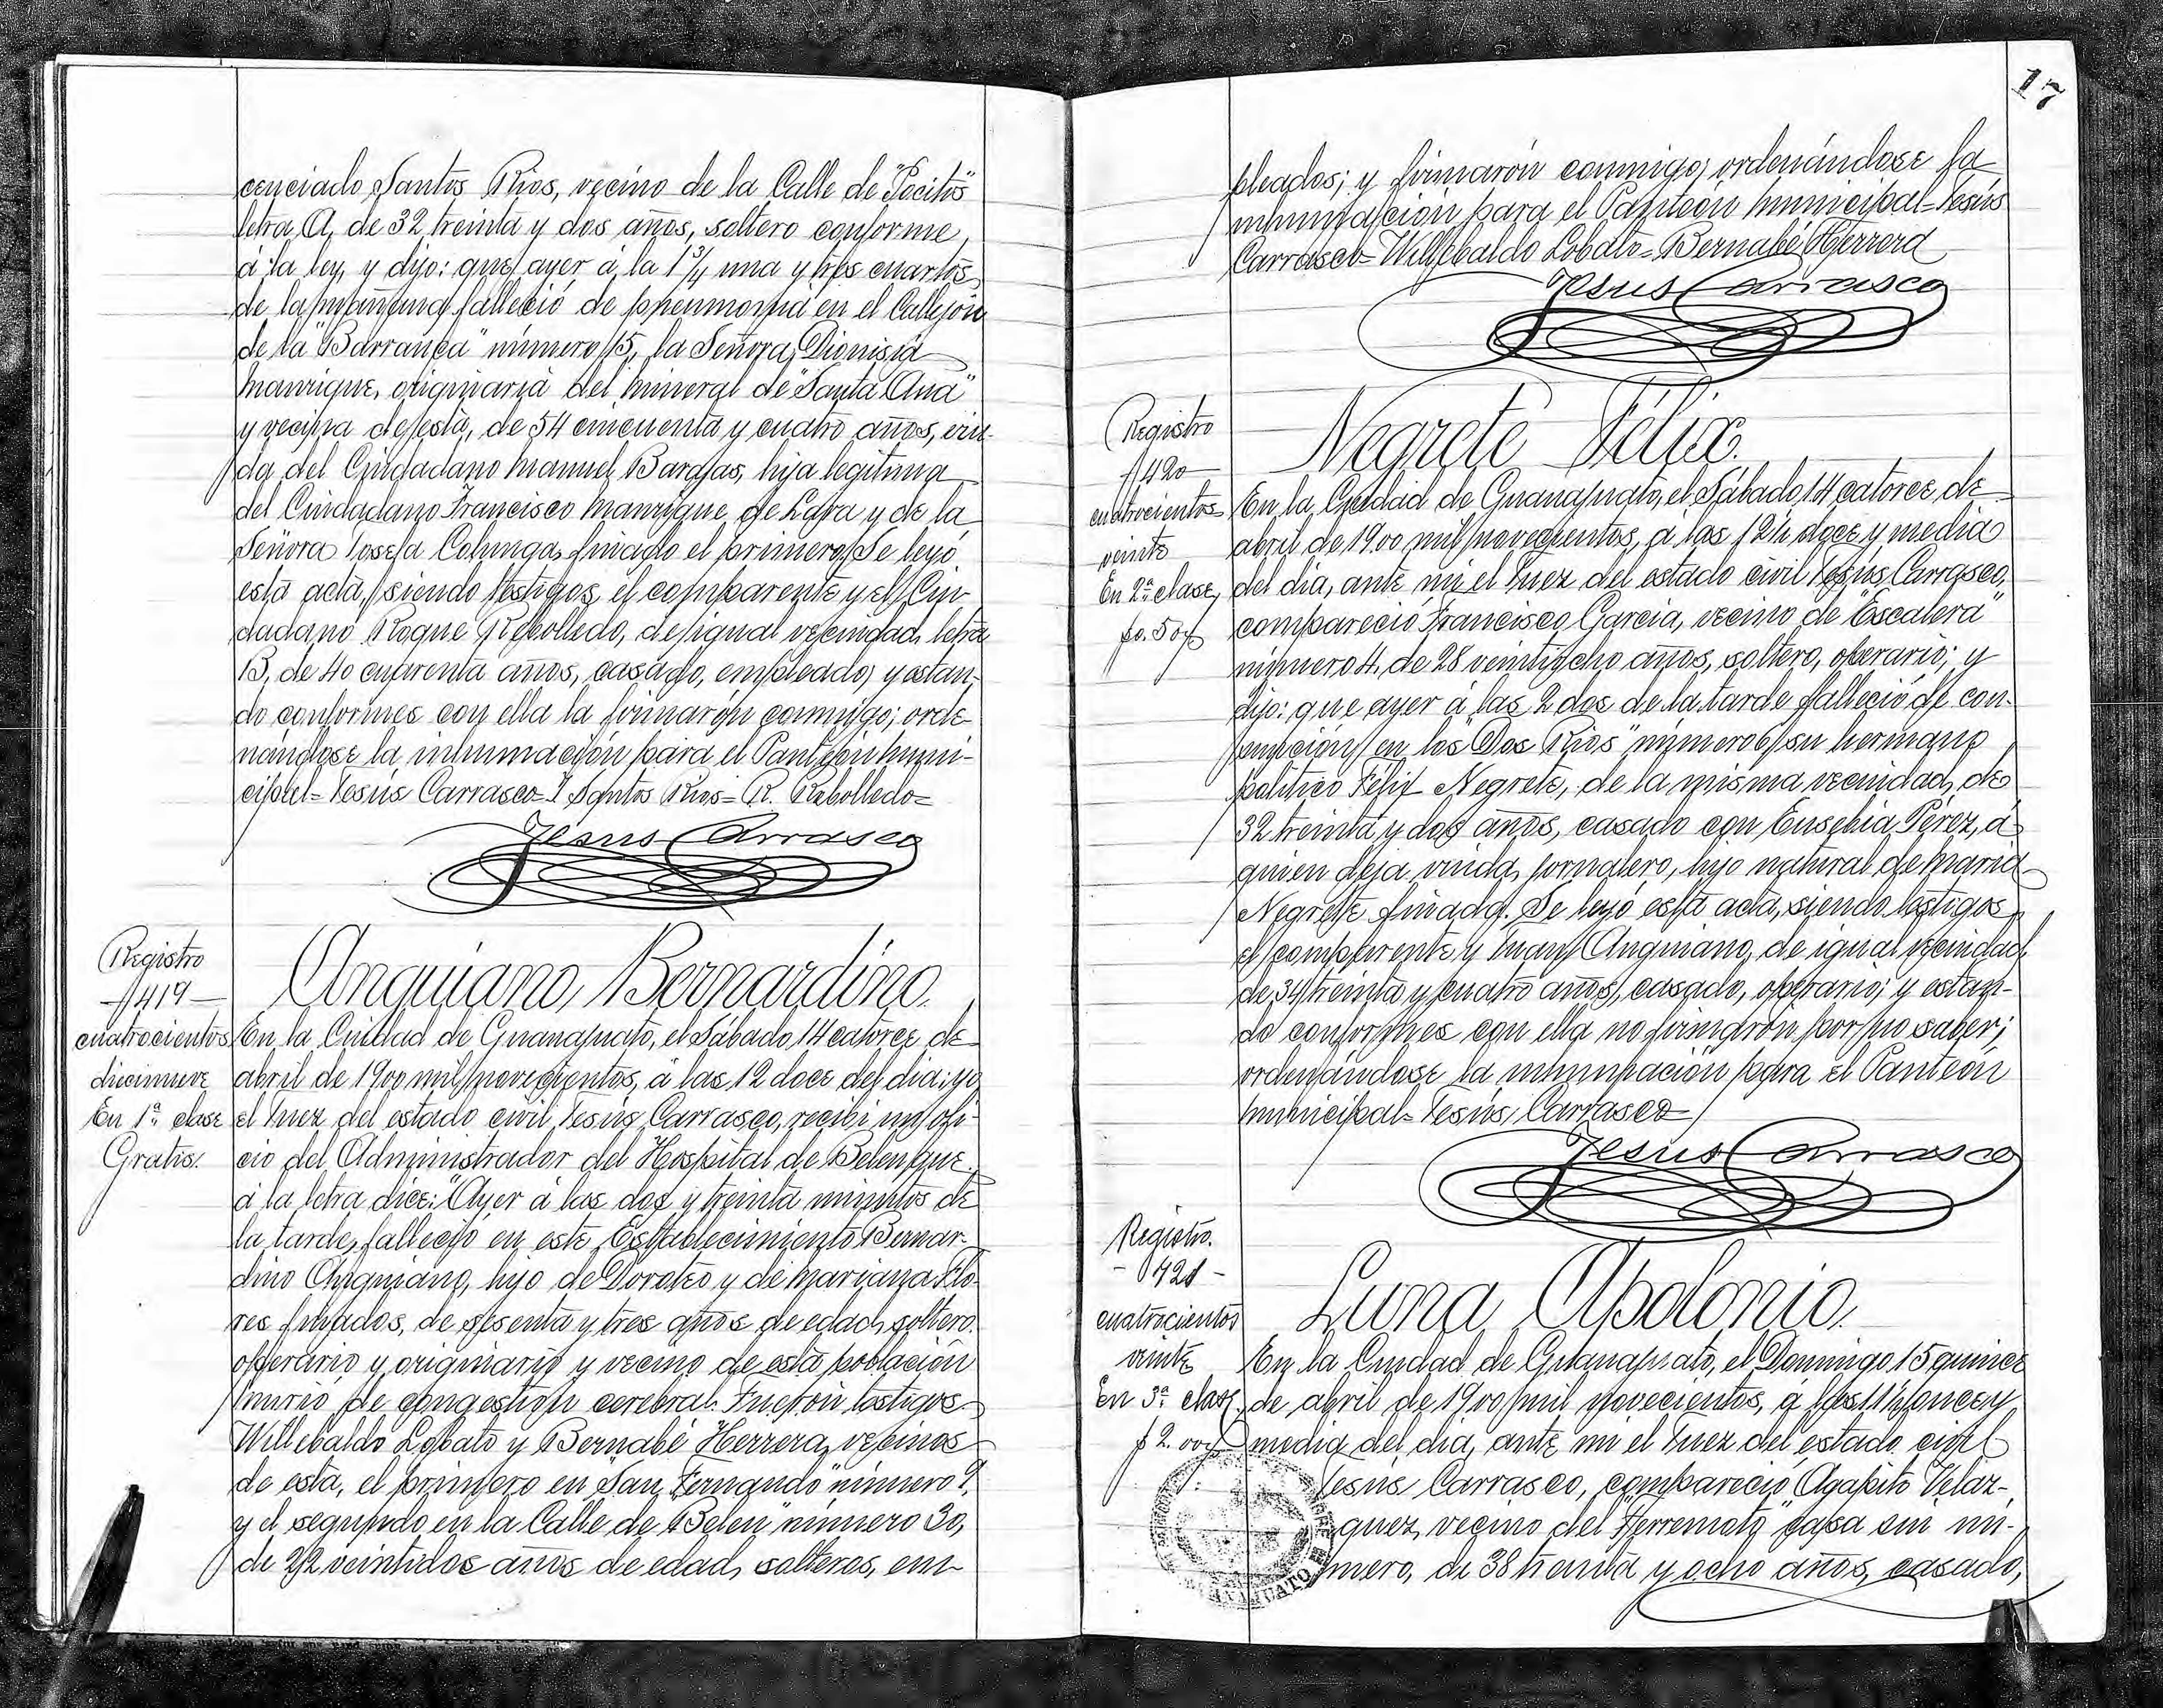 cenciado Santos Rios, vecino de la Calle de "Pocitos"
letra A, de 32 treinta y dos años, soltero conforme
á la ley, y dijo: que ayer á la 1 3/4 una y tres cuartos
de la mañana falleció de pneumonia en el Callejón
de la "Barranca" número 15, la Señora Dionisia
Manrique, originaria del mineral de "Santa Ana"
y vecina de esta, de 54 cincuenta y cuatro años, viu-
da del Ciudadano Manuel Barajas, hija legitima
del Ciudadano Francisco Manrique de Lara y de la
Señora Josefa Colunga, finado el primero. Se leyó
esta acta, siendo testigos el comparente y el Ciu-
dadano Roque Rebolledo, de igual vecindad, letra
B, de 40 cuarenta años, casado, empleado; y estan-
do conformes con ella la firmarón conmigo; orde-
nándose la inhumación para el Panteón muni-
cipal= Jesús Carrasco= J Santos Rios= R. Rebolledo=
Jesus Carrasco
Registro
419
cuatrocientos
diecinueve
En 1ª clase
Gratis.
Anguiano, Bernardino.
En la Ciudad de Guanajuato, el Sábado 14 catorce de
abril de 1900 mil novecientos, á las 12 doce del dia: yo
el Juez del estado civil Jesús Carrasco, recibi un ofi-
cio del Administrador del Hospital de Belen que
á la letra dice: "Ayer á las dos y treinta minutos de
la tarde, falleció en este Establecimiento Bernar-
dino Anguiano, hijo de Doroteo y de Mariana Flo-
res finados, de sesenta y tres años de edad, soltero,
operario y originario y vecino de esta población
murió de congestión cerebral. Fuerón testigos
Willebaldo Lobato y Bernabé Herrera, vecinos
de esta, el primero en "San Fernando" número 9,
y el segundo en la Calle de "Belen" número 30,
de 22 veintidos años de edad, solteros, em-
17
pleados; y firmarón conmigo; ordenándose la
inhumación para el Panteón municipal= Jesús
Carrasco= Willebaldo Lobato= Bernabé Herrera
Jesus Carrasco
Registro
420
cuatrocientos
veinte
En 2ª clase,
Negrete Félix.
En la Ciudad de Guanajuato, el Sábado 14 catorce de
abril de 1900 mil novecientos, a las 12½ doce y media
del dia, ante mi el Juez del estado civil Jesús Carrasco,
compareció Francisco Garcia, vecino de "Escalera"
número 4, de 28 veintiocho años, soltero, operario; y
dijo: que ayer á las 2 dos de la tarde falleció de con-
sunción en los "Dos Rios" número 6 su hermano
politico Félix Negrete, de la misma vecindad, de
32 treinta y dos años, casado con Eusebia Pérez, á
quien deja viuda, jornalero, hijo natural de Maria
Negrete finada. Se leyó esta acta, siendo testigos
el comparente y Juan Anguiano, de igual vecindad,
de 34 treinta y cuatro años, casado, operario; y estan-
do conformes con ella no firmarón por no saber;
ordenándose la inhumación para el Panteón
municipal= Jesús Carrasco
Jesus Carrasco
Registro.
- 421 -
cuatrocientos
veinte
En 3ª clase,
Luna Apolonio.
En la Ciudad de Guanajuato, el Domingo 15 quince
de abril de 1900 mil novecientos, a las 11½ once y
media del dia, ante mi el Juez del estado civil
Jesús Carrasco, compareció Agapito Velaz-
quez, vecino del "Terremoto" casa sin nú-
mero, de 38 treinta y ocho años, casado,